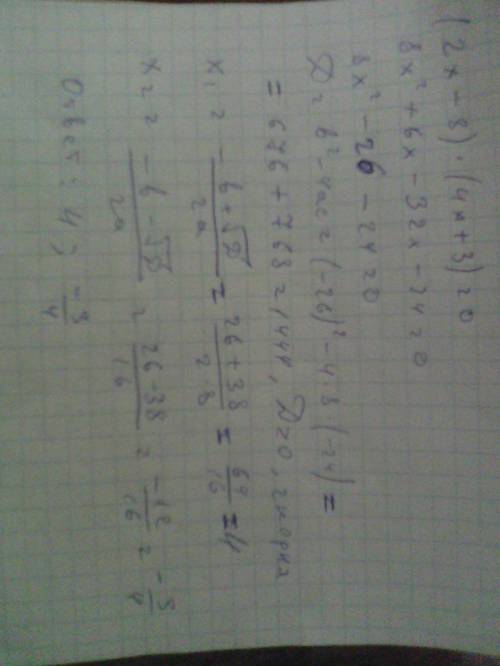 (2x-8)·(4x+3)=0
8x²+6x-32x-24=0
8x²-26-24=0
D=b²-4ac=(-26)²-4·8(-24)=
=676+768=1444, D>0, 2 корня
x₁=-b+√D/2a=26+38/2·8=64/16=4
x₂=-b-√D/2a=26-38/16=-12/16=-3/4
Ответ: 4; -3/4